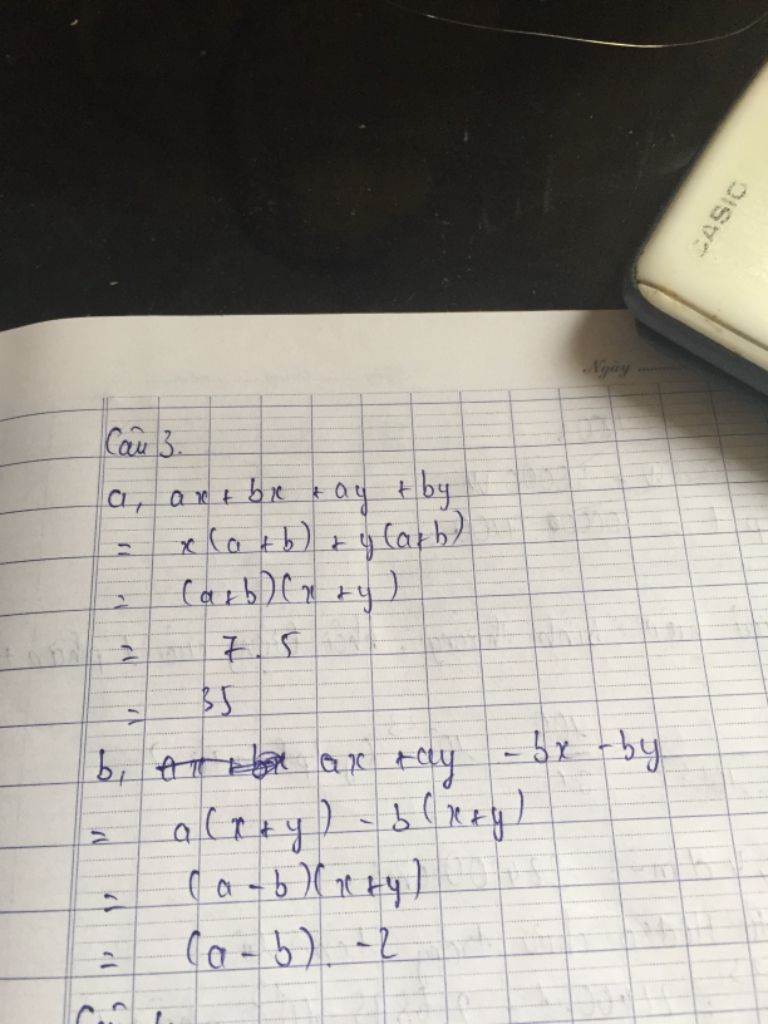 CASIO
Ngày
Câu 3.
a, ax + bx + ay + by
= x(a + b) + y(a+b)
= (a+b)(x + y)
= 7 . 5
= 35
b, ax + ay - bx - by
= a(x + y) - b(x+y)
= (a - b)(x+y)
= (a - b). -2